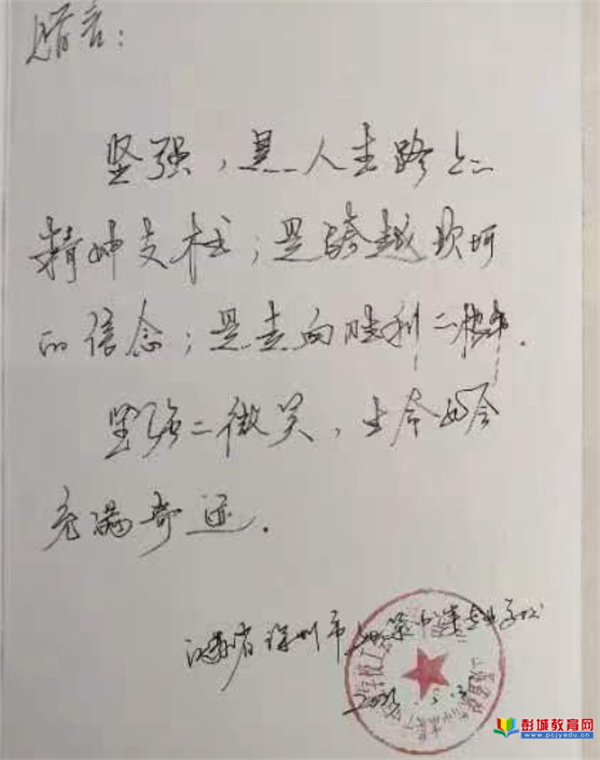 赠言:
坚强,是人生路上
精神支柱;是跨越坎坷
的信念;是走向胜利
坚强 微笑,生命 会
充满奇迹.
江苏省 州市 中等专业学校
彭城教育网
www.pcjyedu.cn